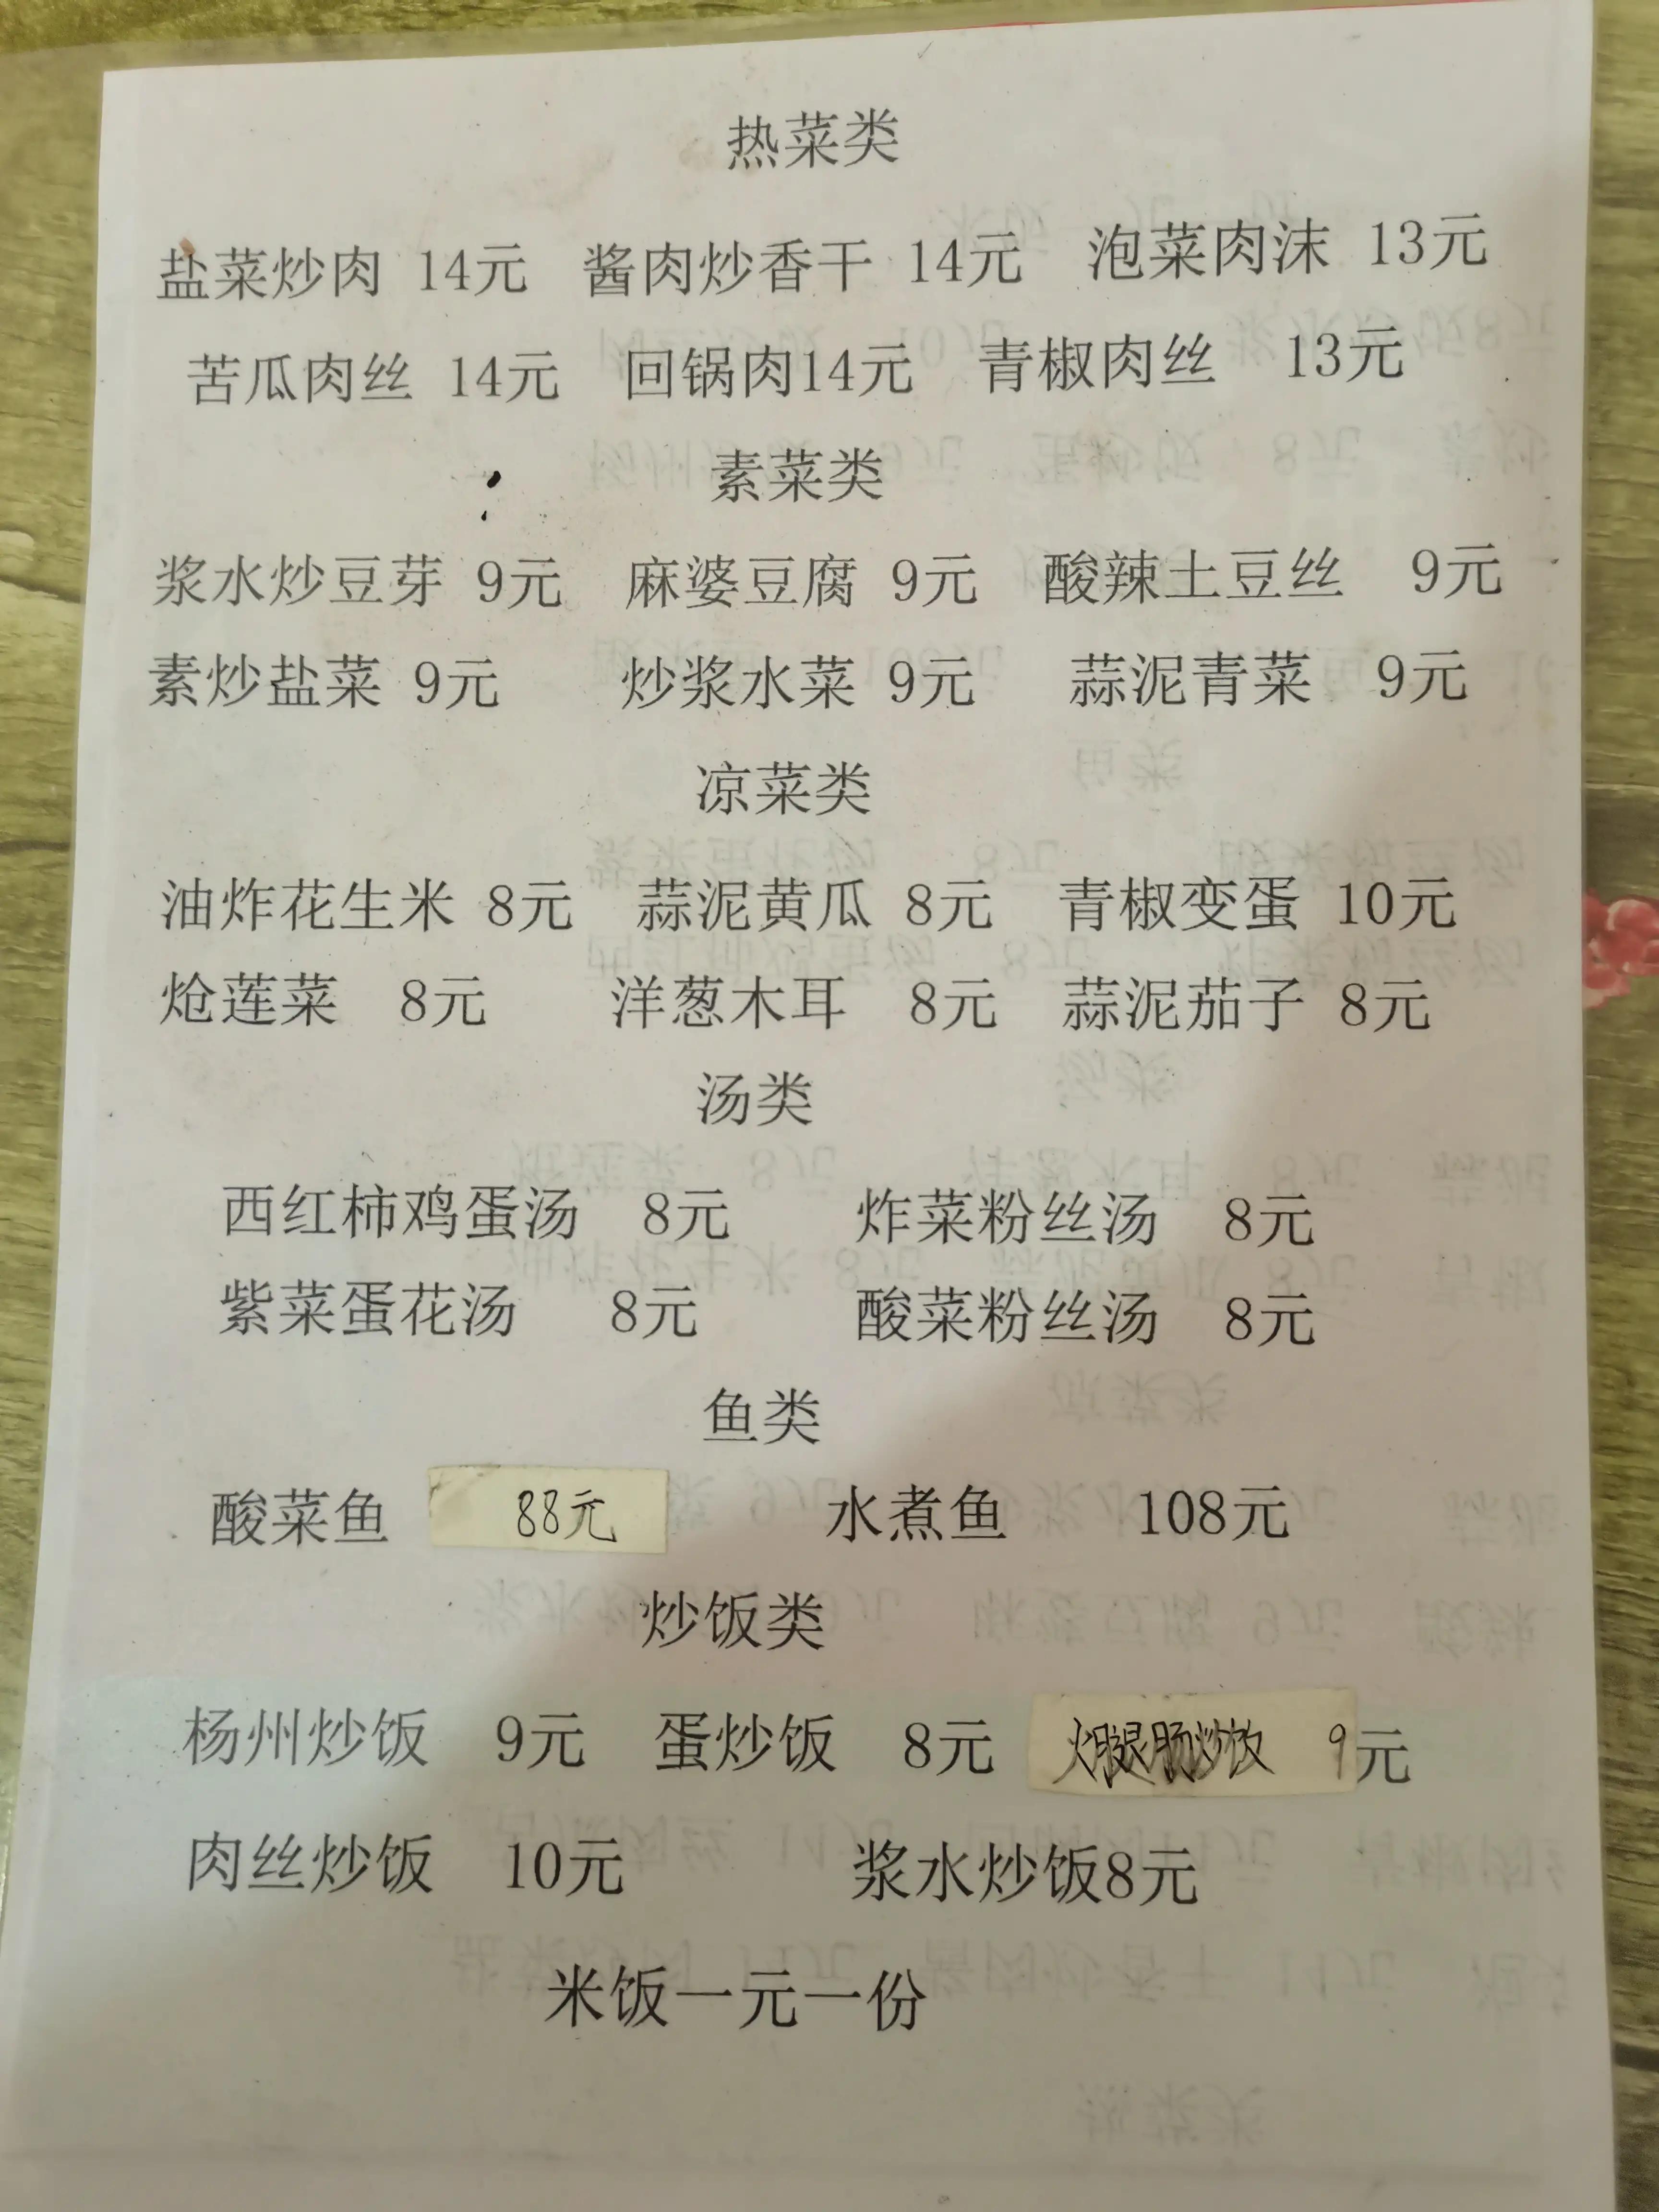 热菜类
盐菜炒肉 14元 酱肉炒香干 14元 泡菜肉沫 13元
苦瓜肉丝 14元 回锅肉14元 青椒肉丝 13元
素菜类
浆水炒豆芽 9元 麻婆豆腐 9元 酸辣土豆丝 9元
素炒盐菜 9元 炒浆水菜 9元 蒜泥青菜 9元
凉菜类
油炸花生米 8元 蒜泥黄瓜 8元 青椒变蛋 10元
炝莲菜 8元 洋葱木耳 8元 蒜泥茄子 8元
汤类
西红柿鸡蛋汤 8元 炸菜粉丝汤 8元
紫菜蛋花汤 8元 酸菜粉丝汤 8元
鱼类
酸菜鱼 88元 水煮鱼 108元
炒饭类
杨州炒饭 9元 蛋炒饭 8元 火腿肠炒饭 9元
肉丝炒饭 10元 浆水炒饭8元
米饭一元一份